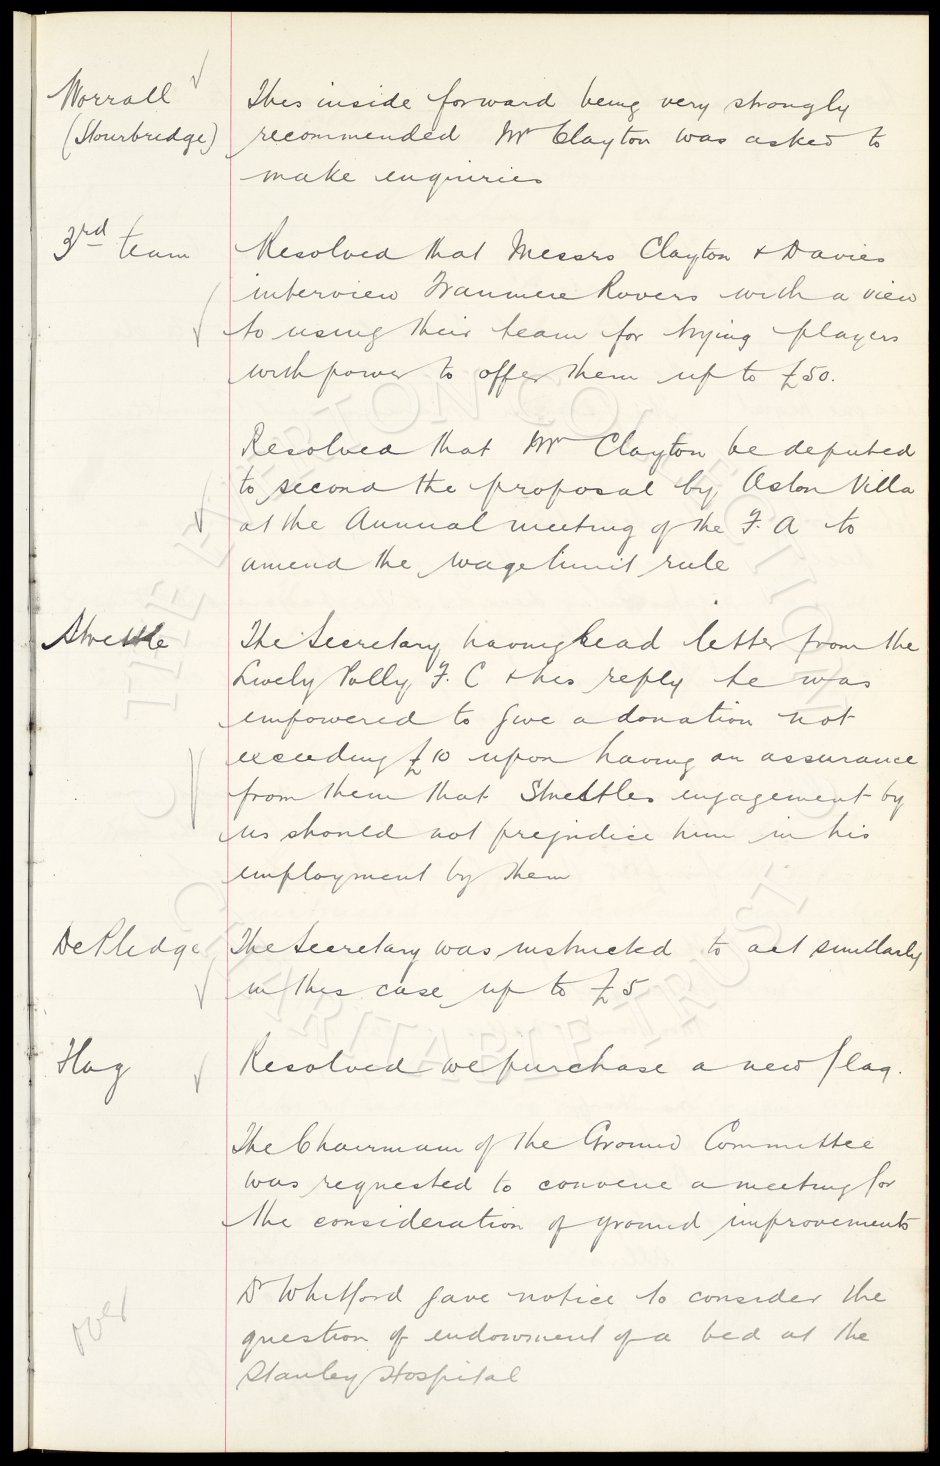 Worrall
(Stourbridge)
This inside forward being very strongly
recommended Mr Clayton was asked to
make enquiries
3rd team
Resolved that Messrs Clayton & Davies
interview Tranmere Rovers with a view
to using their team for trying players
with power to offer them up to £50.
Resolved that Mr Clayton be deputed
to second the proposal by Aston Villa
at the Annual meeting of the F. A to
amend the wage limit rule
Strettle
The Secretary having read letter from the
Lively Polly F. C & his reply he was
empowered to give a donation not
exceeding £10 upon having an assurance
from them that Strettles engagement by
us should not prejudice him in his
employment by them
De Pledge
The Secretary was instructed to act similarly
in this case up to £5
Flag
Resolved we purchase a new flag.
The Chairman of the Ground Committee
was requested to convene a meeting for
the consideration of ground improvements
Dr Whitford gave notice to consider the
question of endowment of a bed at the
Stanley Hospital
over
THE EVERTON COLLECTION
CHARITABLE TRUST